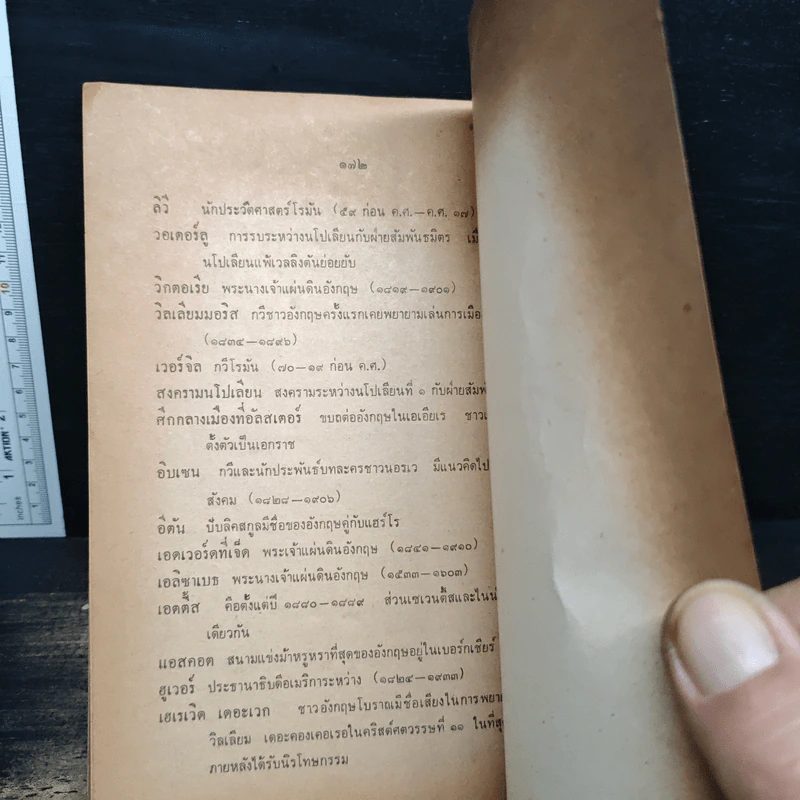 ๑๗๒
ลิวี นักประวัติศาสตร์โรมัน (๕๙ ก่อน ค.ศ.—ค.ศ. ๑๗)
วอเตอร์ลู การรบระหว่างนโปเลียนกับฝ่ายสัมพันธมิตร
นโปเลียนแพ้เวลลิงตันย่อยยับ
วิกตอเรีย พระนางเจ้าแผ่นดินอังกฤษ (๑๘๑๙—๑๙๐๑)
วิลเลียมมอริส กวีชาวอังกฤษครั้งแรกเคยพยายามเล่นการเมือง
(๑๘๓๔—๑๘๙๖)
เวอร์จิล กวีโรมัน (๗๐—๑๙ ก่อน ค.ศ.)
สงครามนโปเลียน สงครามระหว่างนโปเลียนที่ ๑ กับฝ่ายสัมพัน
ศึกกลางเมืองที่อัลสเตอร์ ขบถต่ออังกฤษในเอเอียเร ชาว
ตั้งตัวเป็นเอกราช
อิบเซน กวีและนักประพันธ์บทละครชาวนอรเว มีแนวคิดไป
สังคม (๑๘๒๘—๑๙๐๖)
อีตัน ปับลิคสกูลมีชื่อของอังกฤษคู่กับแฮร์โร
เอดเวอร์ดที่เจ็ด พระเจ้าแผ่นดินอังกฤษ (๑๘๔๑—๑๙๑๐)
เอลิซาเบธ พระนางเจ้าแผ่นดินอังกฤษ (๑๕๓๓—๑๖๐๓)
เอตตี้ส คือตั้งแต่ปี ๑๘๘๐—๑๘๘๙ ส่วนเซเวนตี้สและไนน์
เดียวกัน
แอสคอต สนามแข่งม้าหรูหราที่สุดของอังกฤษอยู่ในเบอร์กเชียร์
ฮูเวอร์ ประธานาธิบดีอเมริการะหว่าง (๑๘๒๔—๑๙๓๓)
เฮเรเวิด เดอะเวก ชาวอังกฤษโบราณมีชื่อเสียงในการพยา
วิลเลียม เดอะคองเคอเรอในคริสต์ศตวรรษที่ ๑๑ ในที่สุ
ภายหลังได้รับนิรโทษกรรม
10
9
2
1
inches
AKTION